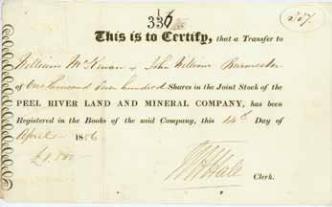 This is to Certify, that a Transfer to
William
John William
of One thousand hundred Shares in the Joint Stock of the
PEEL RIVER LAND AND MINERAL COMPANY, has been
Registered in the Books of the said Company, this 14th Day of
April 1856
Clerk.